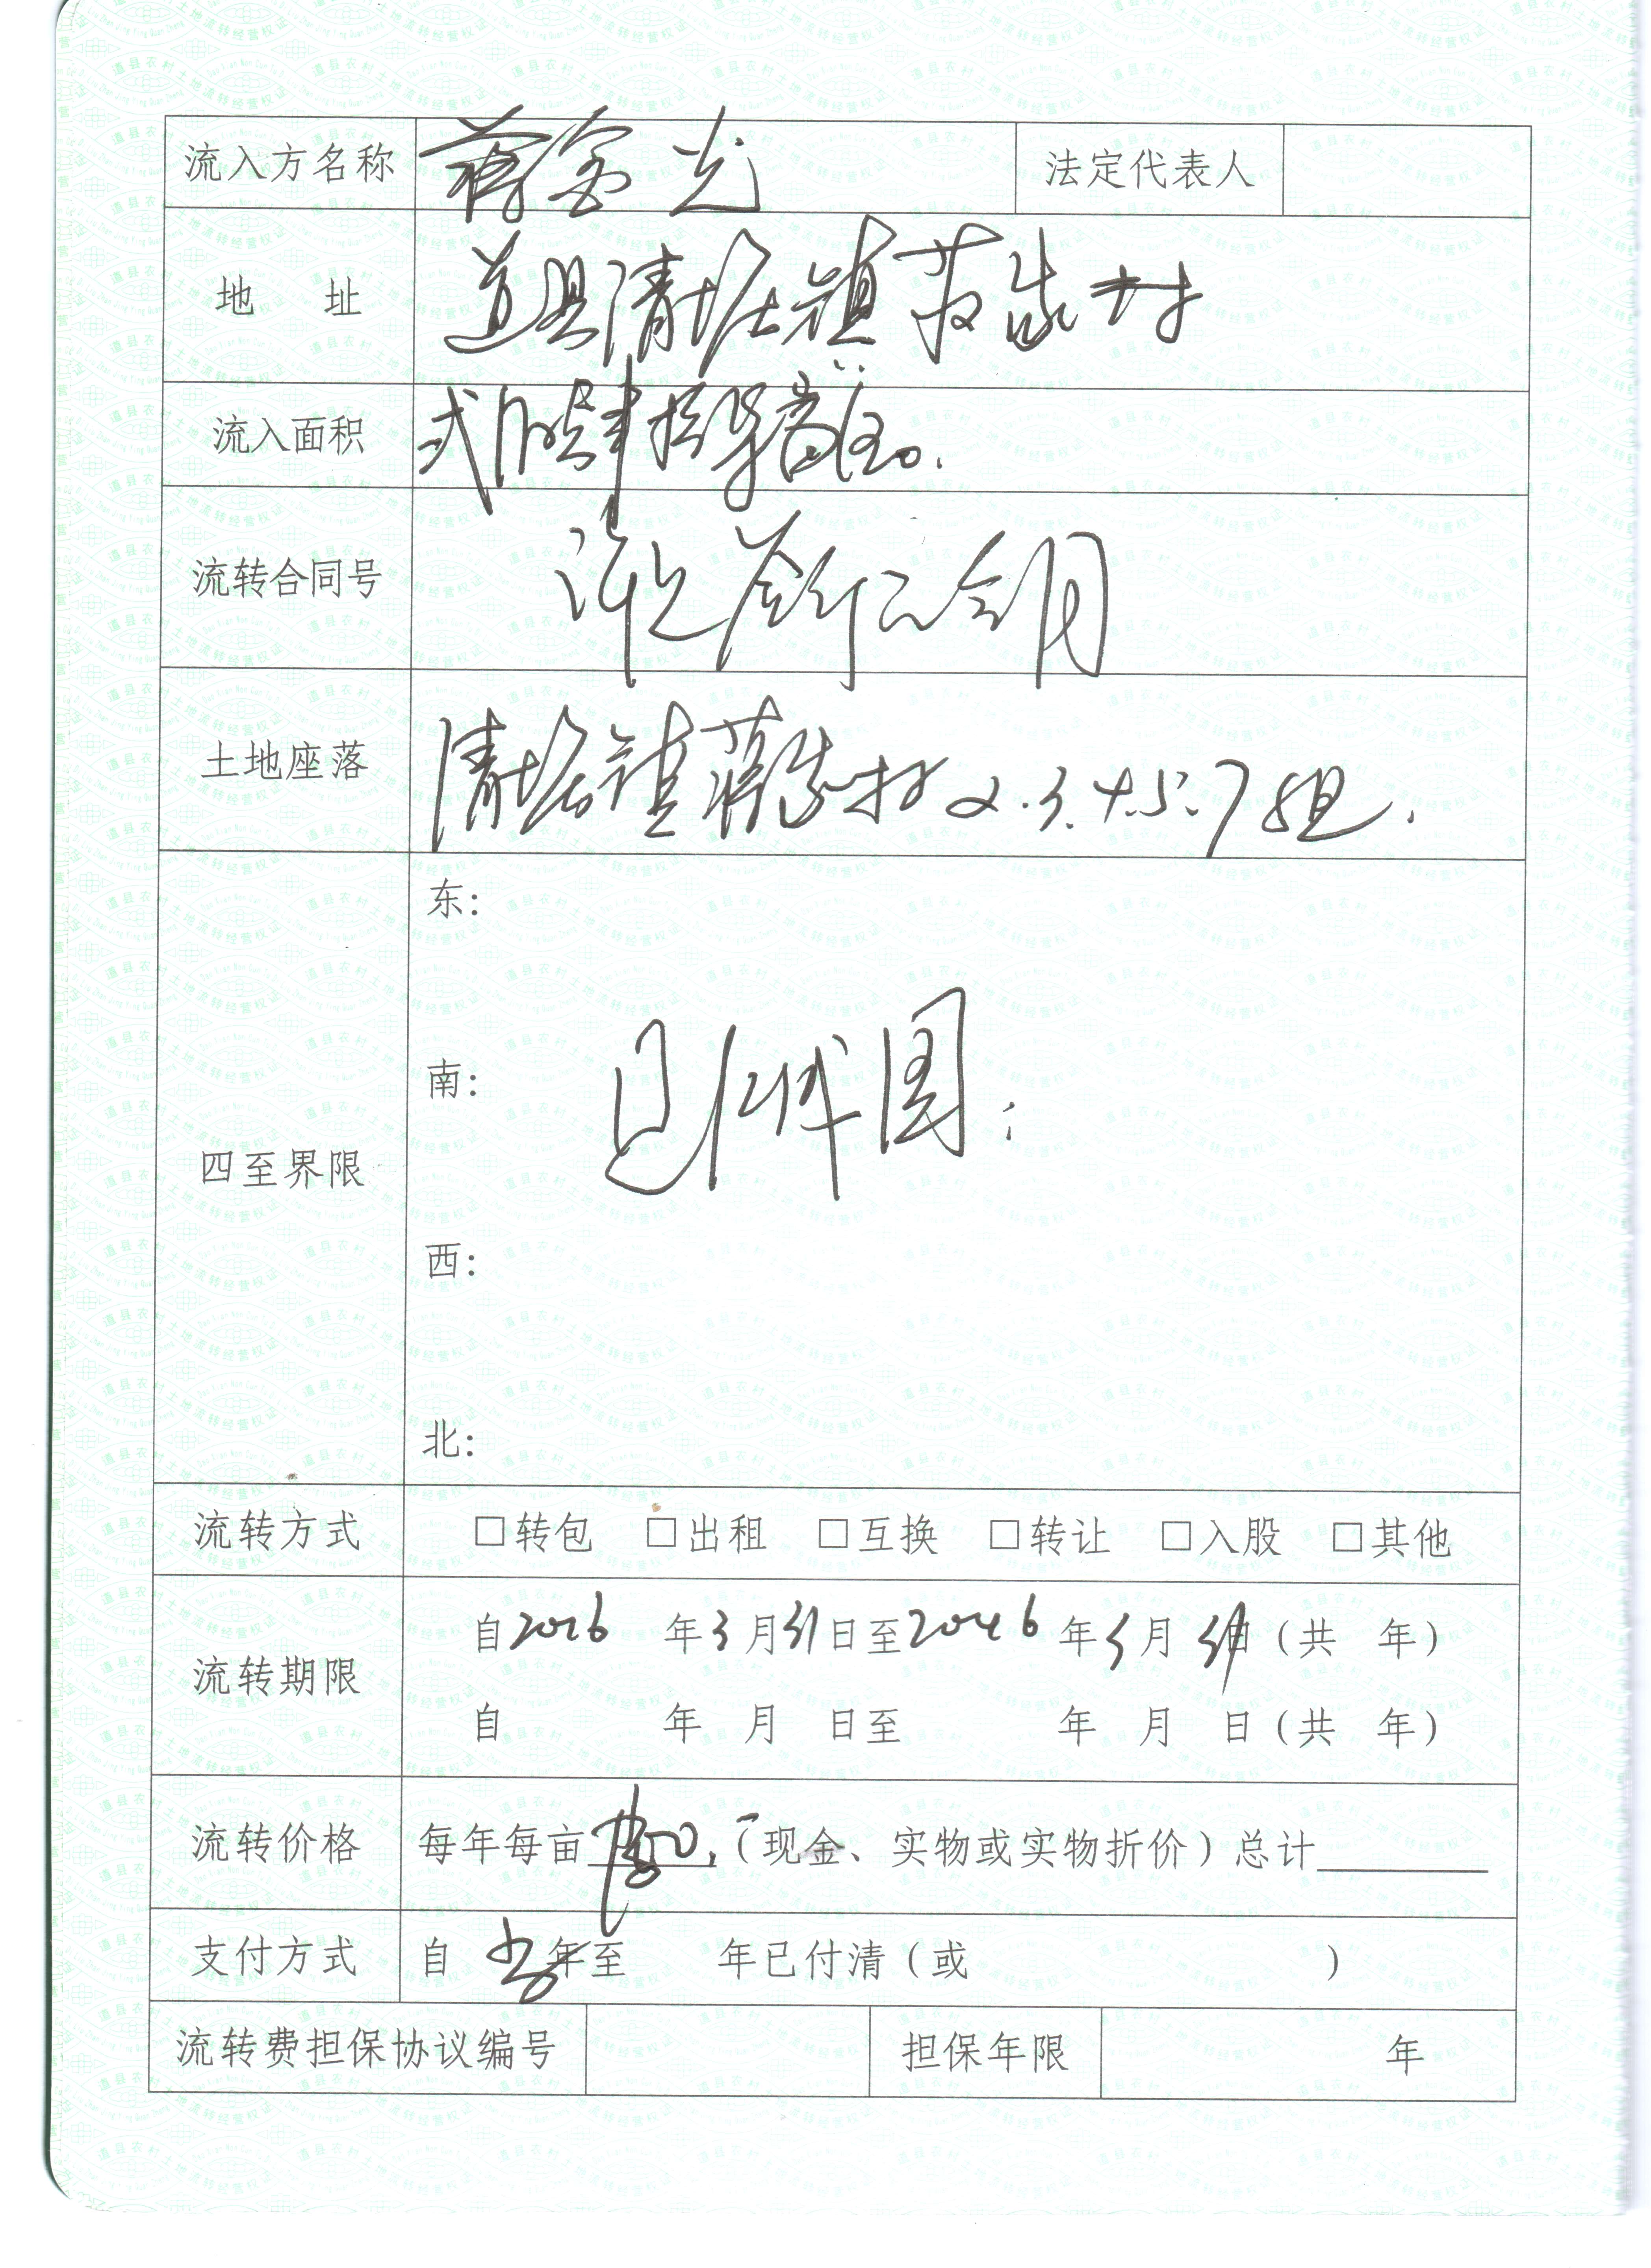 流入方名称 蒋金光 法定代表人
地 址 道县清塘镇蒋家村
流入面积
流转合同号
土地座落 清塘镇蒋家村2.3.4.5.7组.
东:
南:
四至界限
西:
北:
流转方式 □转包 □出租 □互换 □转让 □入股 □其他
自2016年3月31日至2046年3月31日(共 年)
流转期限
自 年 月 日至 年 月 日(共 年)
流转价格 每年每亩 (现金、实物或实物折价)总计
支付方式 自 年至 年已付清(或 )
流转费担保协议编号 担保年限 年